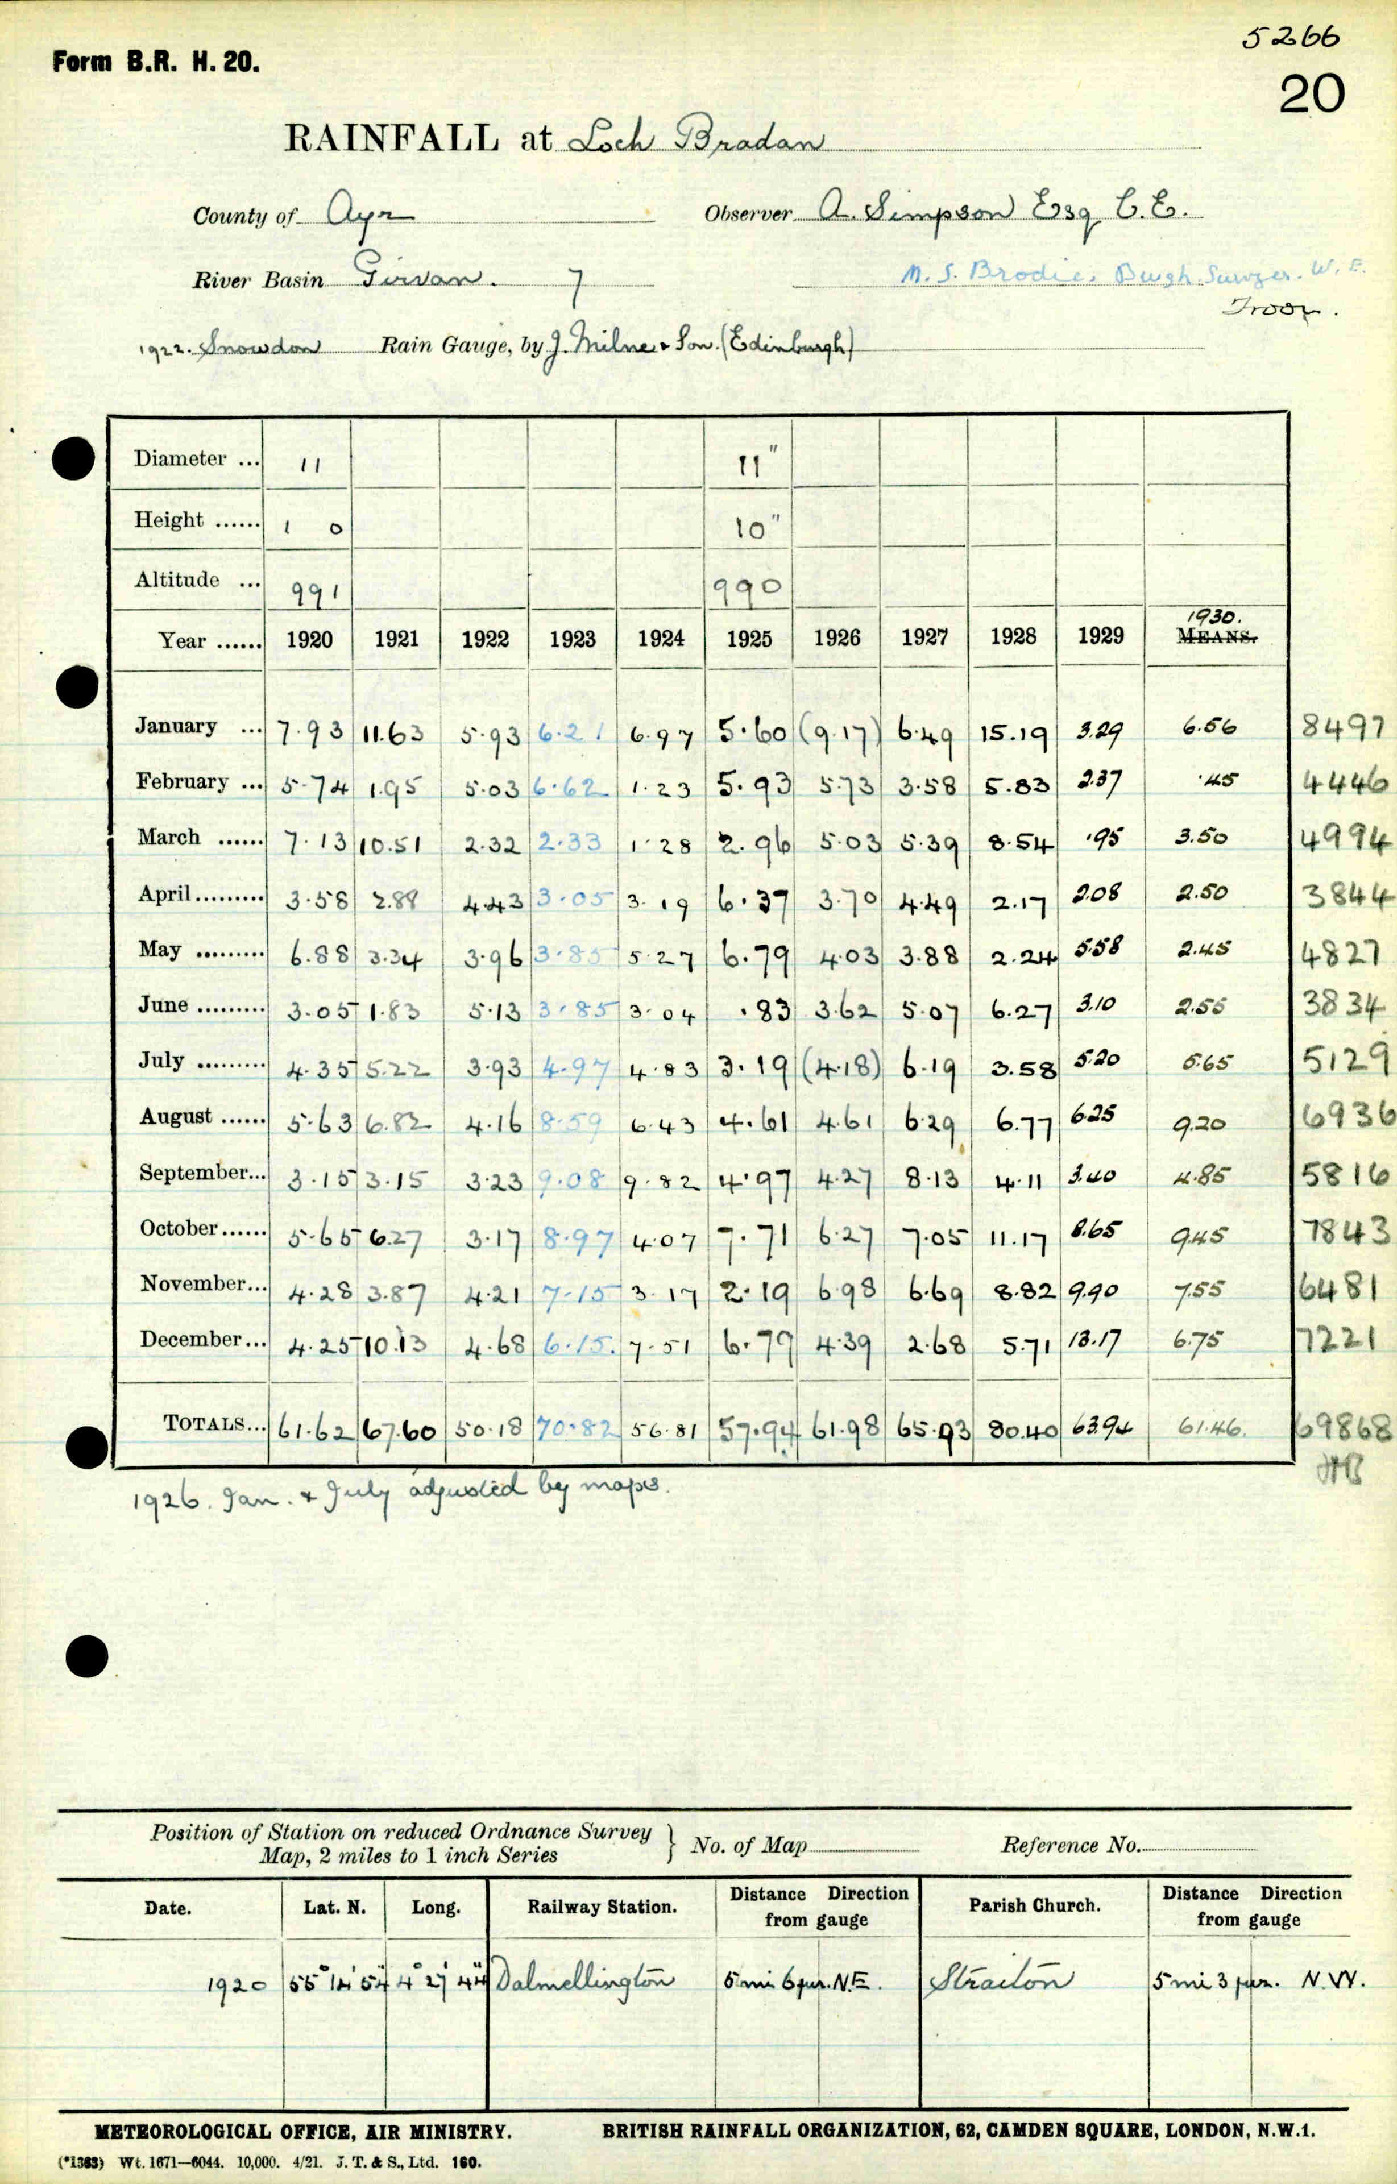 5266
Form B.R. H. 20.
20
RAINFALL at Loch Bradan
County of Ayr Observer A. Simpson Esq C.E.
River Basin Girvan. 7 M. S. Brodie, Burgh Surveyor. W. E.
Troon.
1922. Snowdon Rain Gauge, by J. Milne & Son. (Edinburgh)
Diameter ... 11 11"
Height ...... 1 0 10"
Altitude ... 991 990
1930.
Year ...... 1920 1921 1922 1923 1924 1925 1926 1927 1928 1929 MEANS.
January ... 7.93 11.63 5.93 6.21 6.97 5.60 (9.17) 6.49 15.19 3.29 6.56 8497
February ... 5.74 1.95 5.03 6.62 1.23 5.93 5.73 3.58 5.83 2.37 .45 4446
March ...... 7.13 10.51 2.32 2.33 1.28 2.96 5.03 5.39 8.54 .95 3.50 4994
April ......... 3.58 2.88 4.43 3.05 3.19 6.37 3.70 4.49 2.17 2.08 2.50 3844
May ......... 6.88 3.34 3.96 3.85 5.27 6.79 4.03 3.88 2.24 5.58 2.45 4827
June ......... 3.05 1.83 5.13 3.85 3.04 .83 3.62 5.07 6.27 3.10 2.55 3834
July ......... 4.35 5.22 3.93 4.97 4.83 3.19 (4.18) 6.19 3.58 5.20 5.65 5129
August ...... 5.63 6.82 4.16 8.59 6.43 4.61 4.61 6.29 6.77 6.25 9.20 6936
September... 3.15 3.15 3.23 9.08 9.82 4.97 4.27 8.13 4.11 3.40 4.85 5816
October ...... 5.65 6.27 3.17 8.97 4.07 7.71 6.27 7.05 11.17 8.65 9.45 7843
November... 4.28 3.87 4.21 7.15 3.17 2.19 6.98 6.69 8.82 9.90 7.55 6481
December... 4.25 10.13 4.68 6.15 7.51 6.79 4.39 2.68 5.71 13.17 6.75 7221
TOTALS... 61.62 67.60 50.18 70.82 56.81 57.94 61.98 65.93 80.40 63.94 61.46. 69868
1926. Jan. & July adjusted by maps.
Position of Station on reduced Ordnance Survey
Map, 2 miles to 1 inch Series } No. of Map Reference No.
Date. Lat. N. Long. Railway Station. Distance Direction from gauge Parish Church. Distance Direction from gauge
1920 55° 14' 54" 4° 27' 44" Dalmellington 5 mi 6 fur. N.E. Straiton 5 mi 3 fur. N.W.
METEOROLOGICAL OFFICE, AIR MINISTRY. BRITISH RAINFALL ORGANIZATION, 62, CAMDEN SQUARE, LONDON, N.W.1.
(*1383) Wt. 1671—6044. 10,000. 4/21. J. T. & S., Ltd. 160.